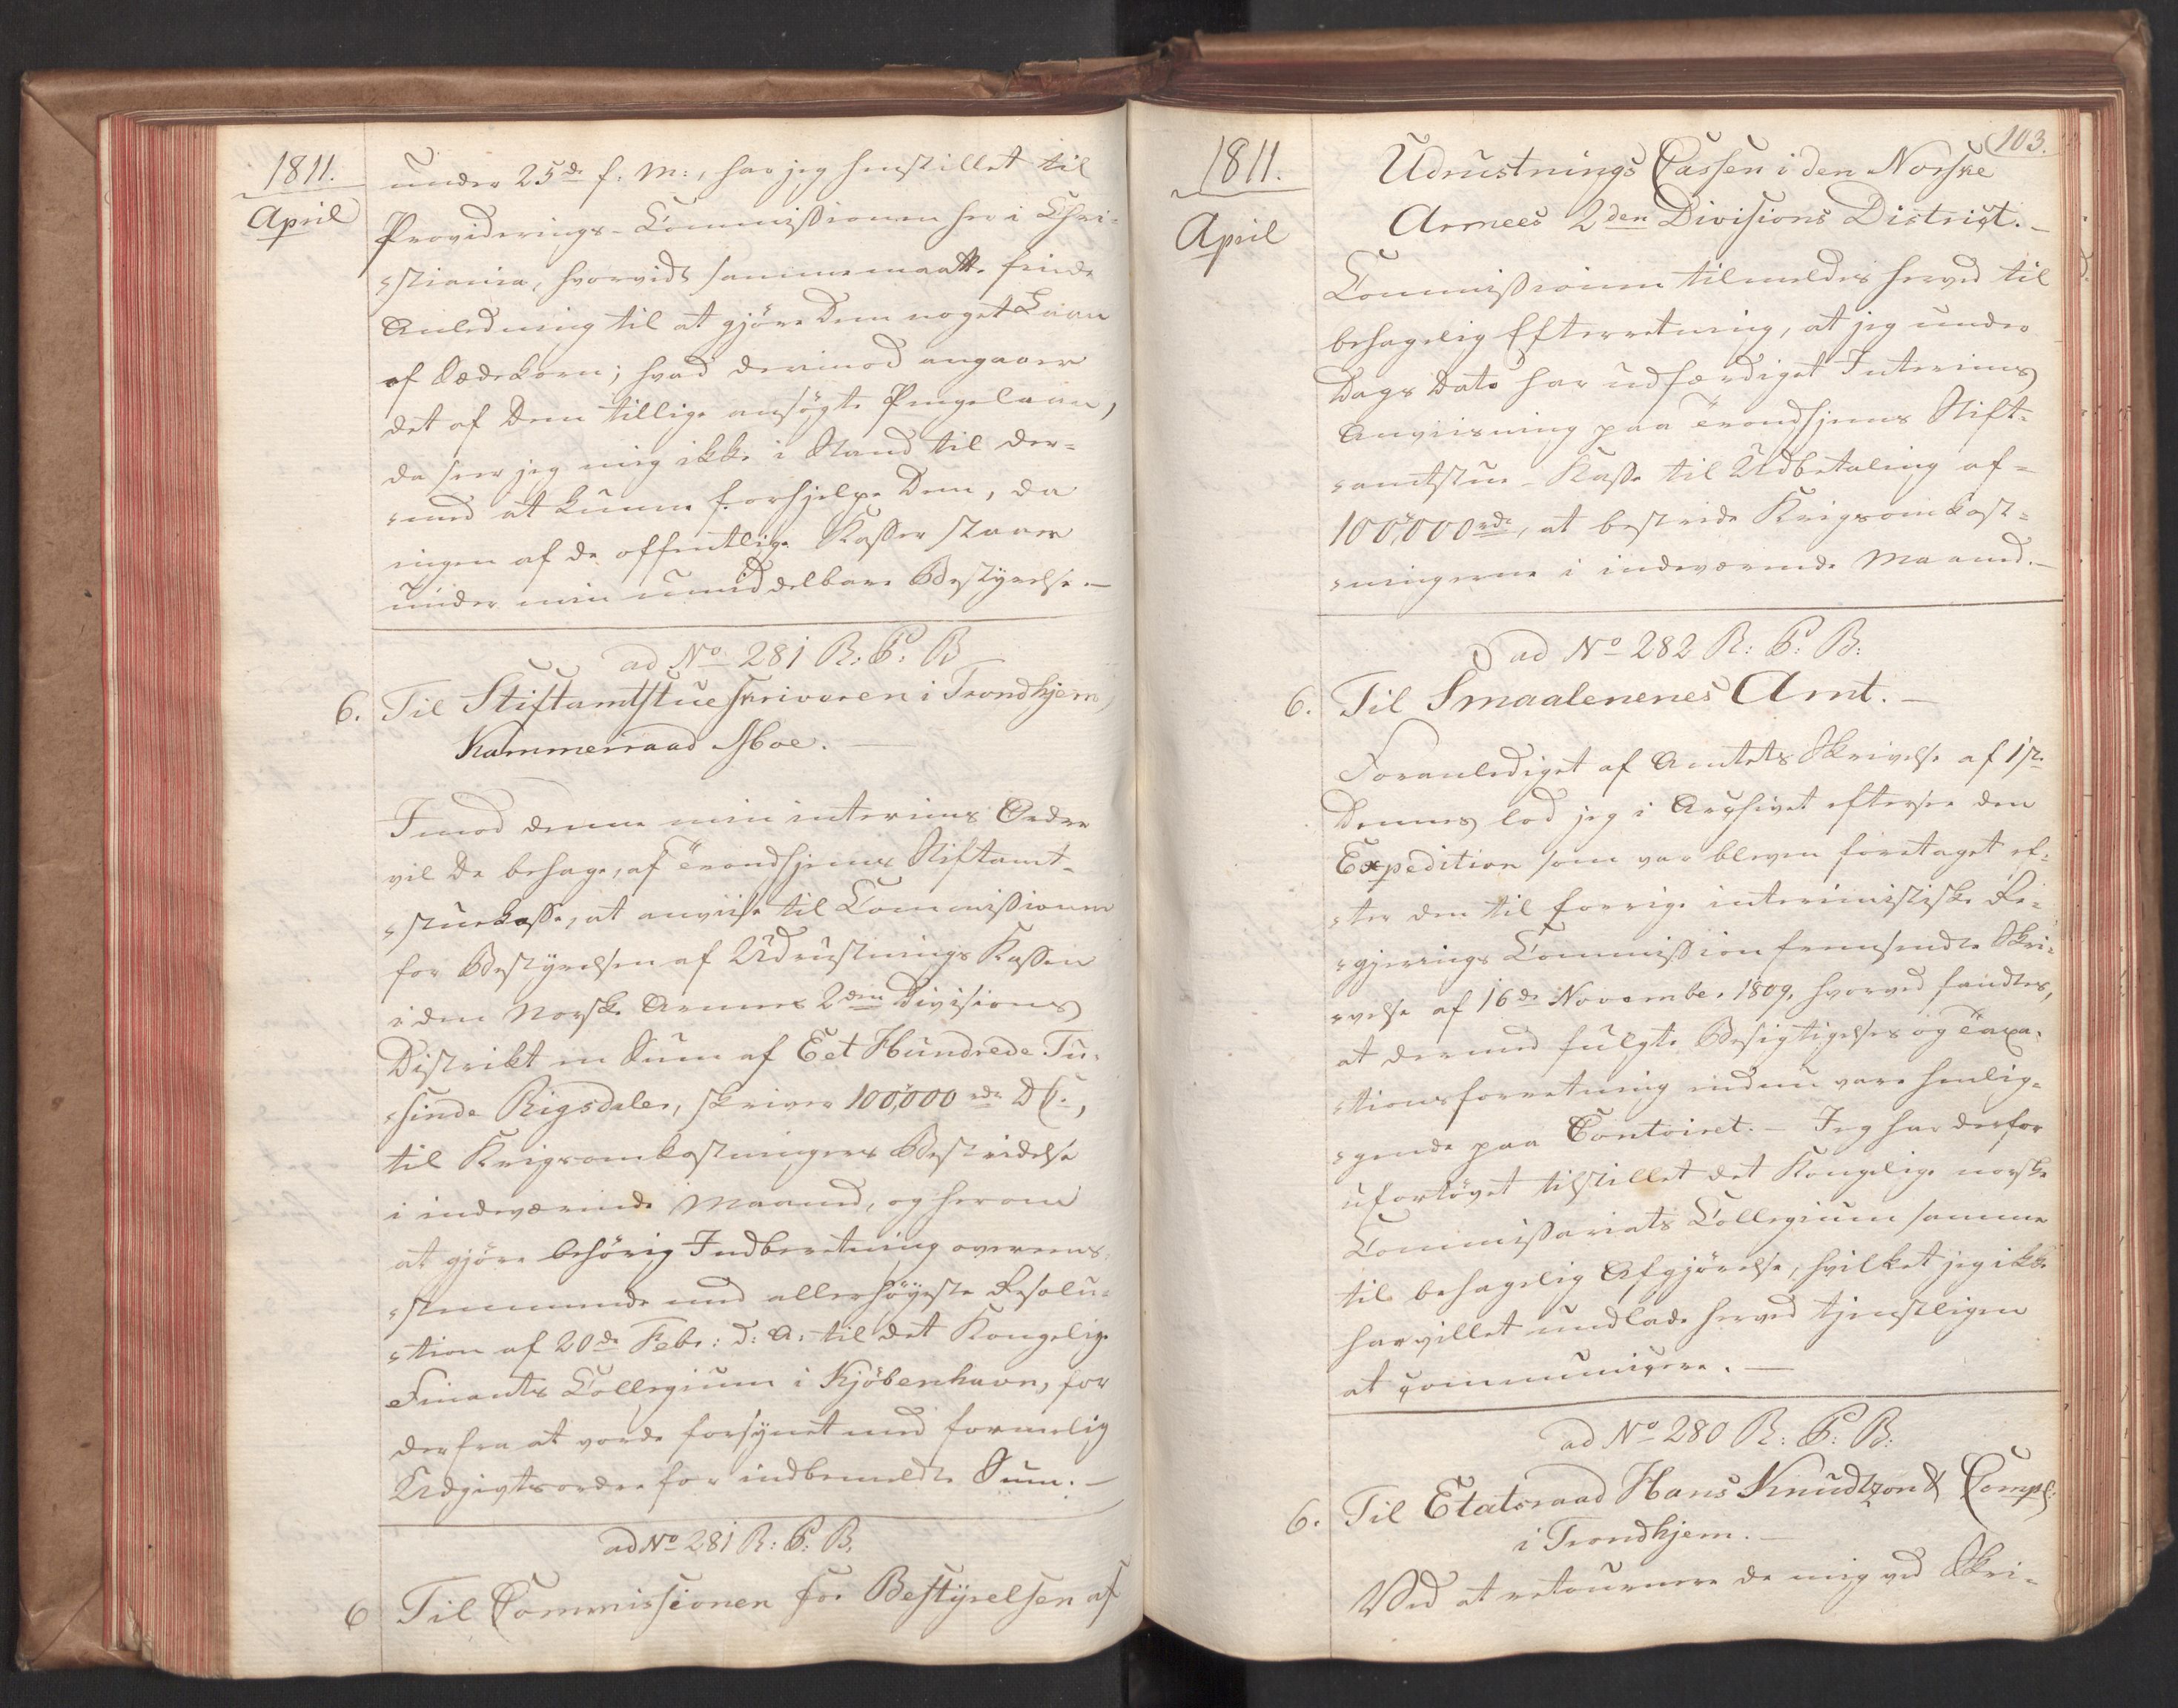 1811.
April
under 25de f: M:, har jeg henstillet til
Providerings-Commissionen her i Chri-
stiania, hvorvidt samme maatte finde
Anledning til at gjöre Dem noget Laan
af Sædekorn; hvad derimod angaaer
det af Dem tillige ansögte Pengelaan,
da seer jeg mig ikke i Stand til der-
med at kunne forhjelpe Dem, da
ingen af de offentlige Kasser staaer
under min umiddelbare Bestyrelse.—
ad No 281 R: C: B
6. Til Stiftamtstueskriveren i Trondhjem,
Kammerraad Moe.—
Imod denne min interims Ordre
vil De behage, af Trondhjems Stiftamt-
stuekasse, at anviise til Commissionen
for Bestyrelsen af Udrustnings Kassen
i den Norske Armees 2den Divisions
Distrikt en Sum af Eet Hundrede Tu-
sinde Rigsdaler, skriver 100,000 rdr D C.,
til Krigsomkostningers Bestridelse
i indeværende Maaned, og herom
at gjöre behörig Indberetning overeens-
stemmende med allerhöyeste Resolu-
tion af 20de Febr: d: A: til det Kongelige
Finants Collegium i Kjöbenhavn, for
derfra at vorde forsynet med formelig
Udgivtsordre for indbemeldte Sum.—
ad No 281 R: C: B.
6 Til Commissionen for Bestyrelsen af
103.
1811.
April
Udrustnings Cassen i den Norske
Armees 2den Divisions District.—
Commissionen tilmeldes herved til
behagelig Efterretning, at jeg under
Dags Dato har udfærdiget Interims
Anviisning paa Trondhjems Stift-
amtstue-Kasse til Udbetaling af
100,000 rdr, at bestride Krigsomkost-
ningerne i indeværende Maaned.—
ad No 282 R: C: B:
6. Til Smaalenenes Amt.—
Foranlediget af Amtets Skrivelse af 1ste
Dennes lod jeg i Archivet eftersee den
Expedition som var bleven foretaget ef-
ter den til forrige interimistiske Re-
gjerings Commission fremsendte Skri-
velse af 16de November 1809, hvorved fandtes,
at dermed fulgte Besigtigelses og Taxa-
tionsforretning endnu vare henlig-
gende paa Contoiret.— Jeg har derfor
ufortövet tilstillet det Kongelige norske
Commissariats Collegium samme
til behagelig Afgjörelse, hvilket jeg ikke
har villet undlade herved tjenstligen
at communicere.—
ad No 280 R: C: B:
6. Til Etatsraad Hans Knudtzon & Comp:
i Trondhjem.—
Ved at retournere de mig ved Skri-